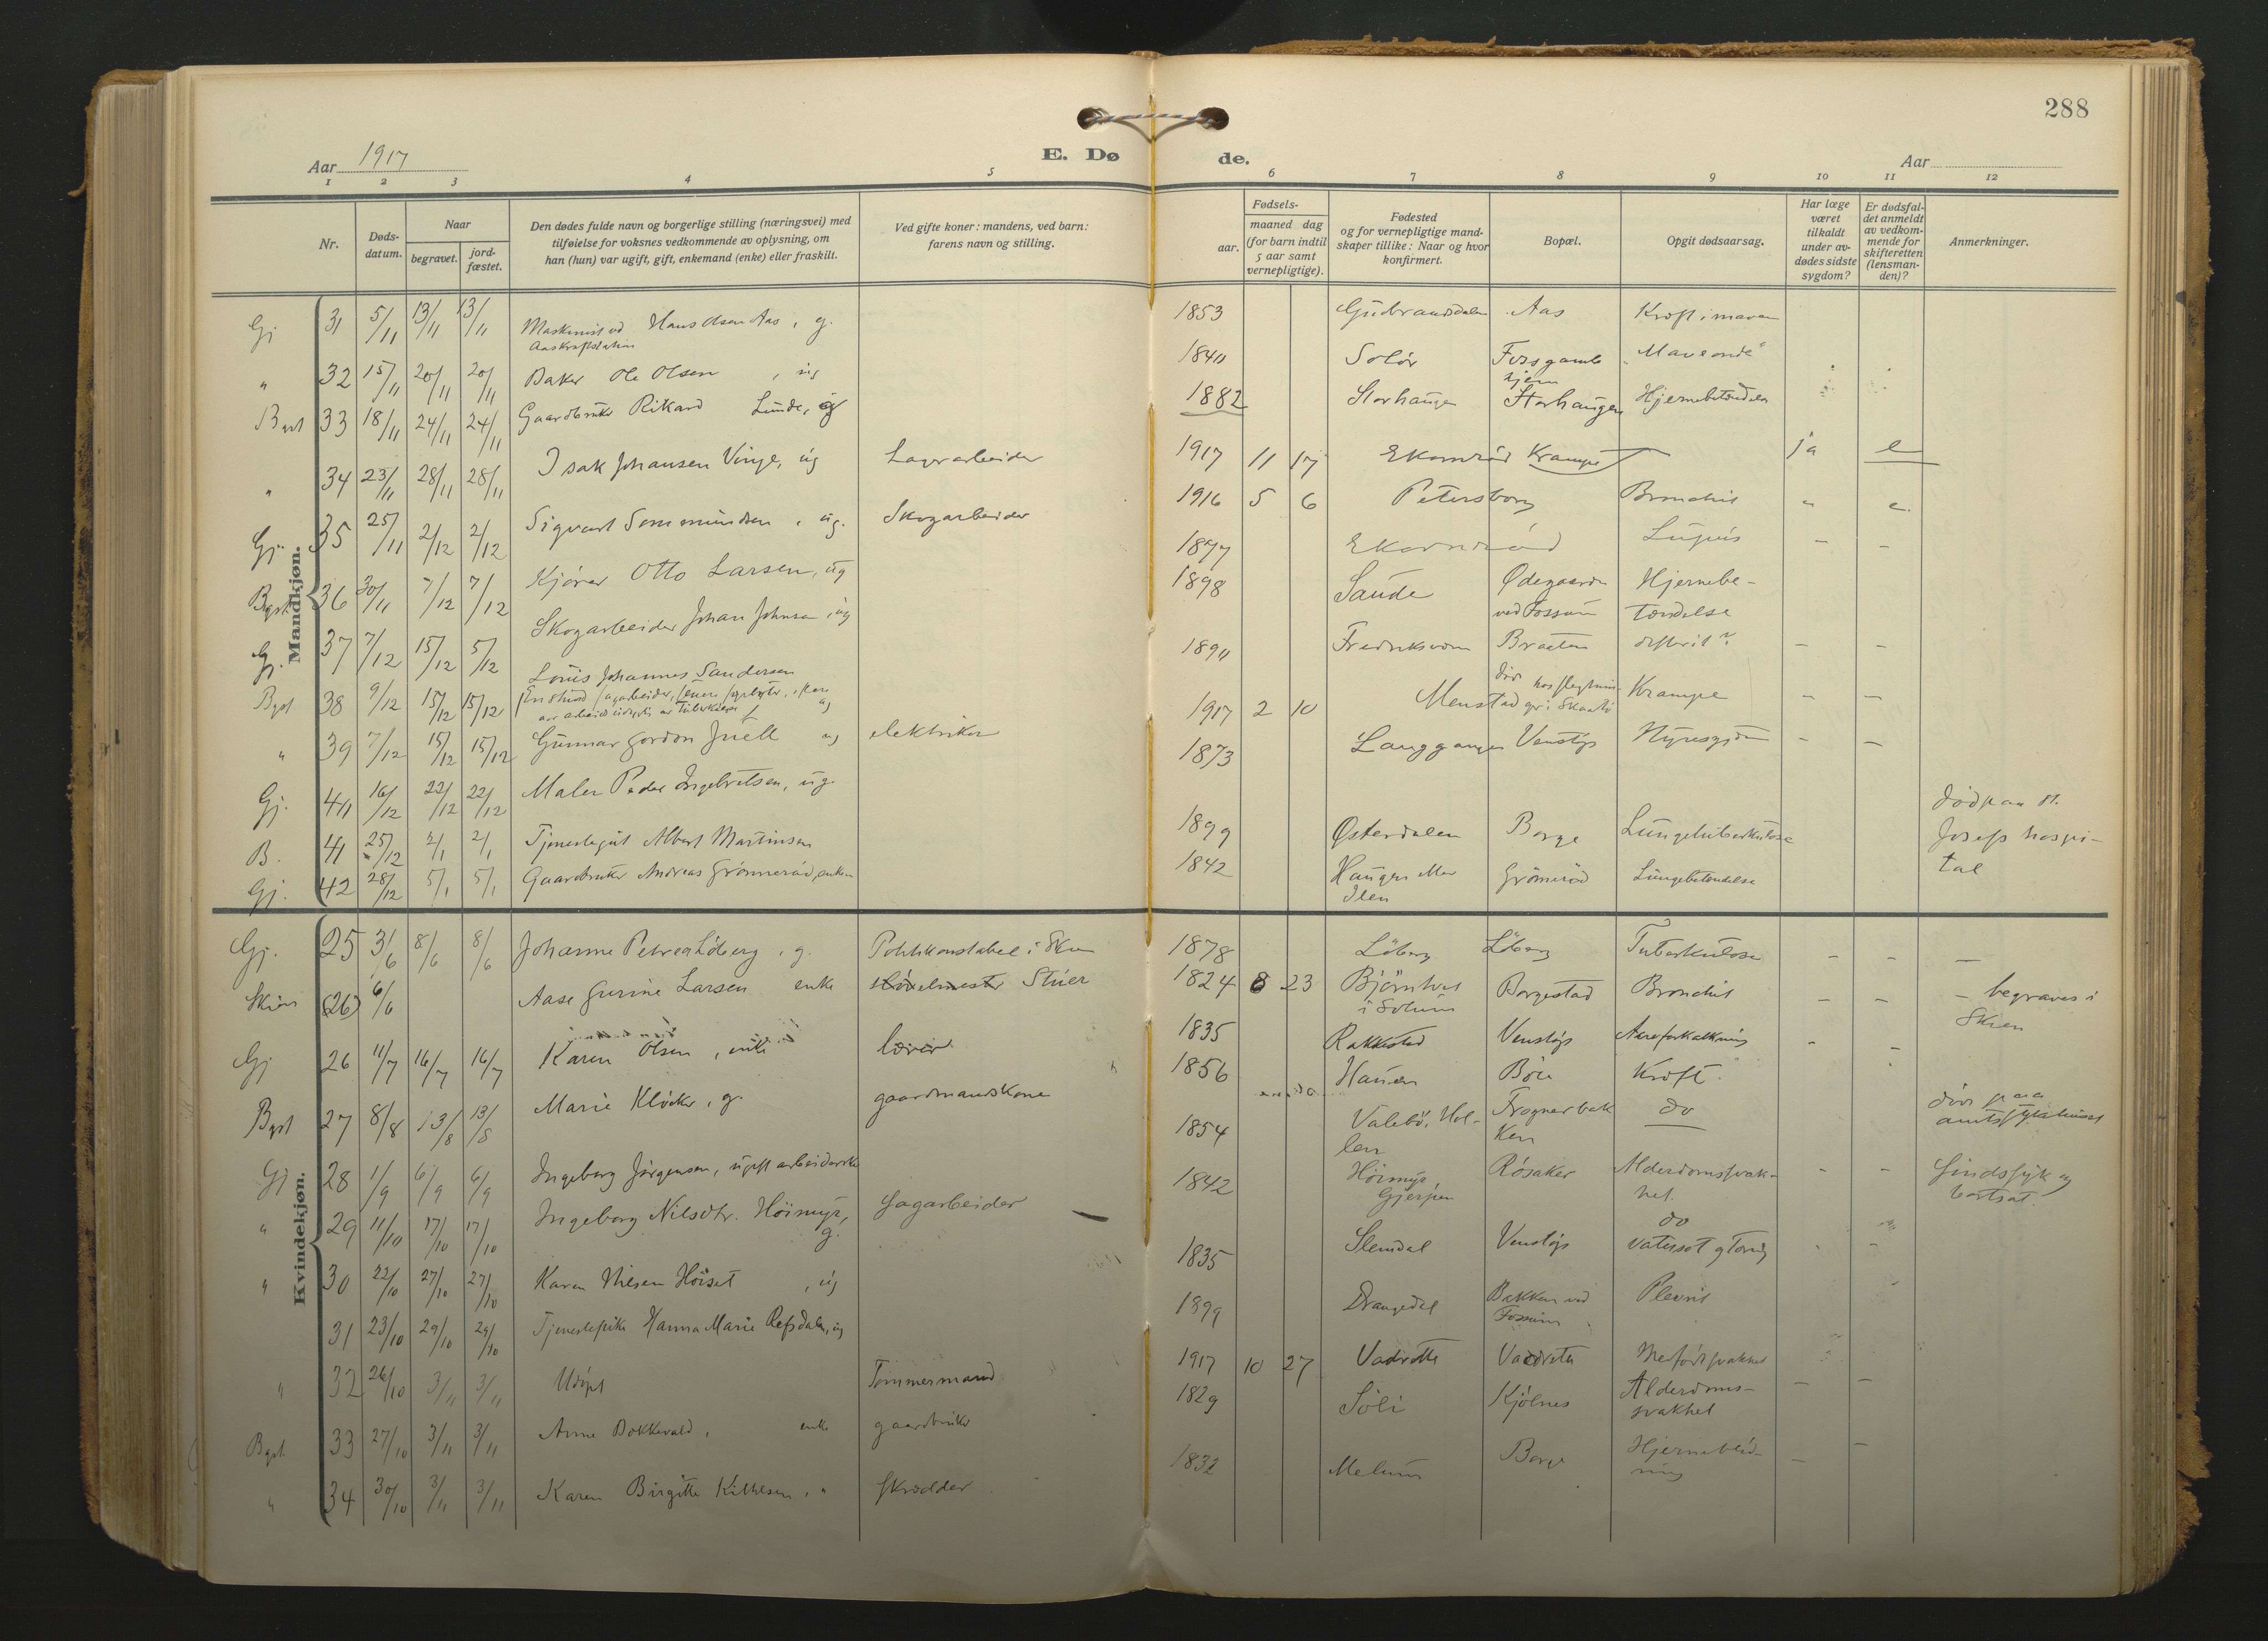 288
Aar 1917
E. Dø
de.
Aar
1 2 3 4 5 6 7 8 9 10 11 12
Nr.
Døds-
datum.
Naar
begravet.
jord-
fæstet.
Den dødes fulde navn og borgerlige stilling (næringsvei) med
tilføielse for voksnes vedkommende av oplysning, om
han (hun) var ugift, gift, enkemand (enke) eller fraskilt.
Ved gifte koner: mandens, ved barn:
farens navn og stilling.
Fødsels-
aar.
maaned dag
(for barn indtil
5 aar samt
vernepligtige).
Fødested
og for vernepligtige mand-
skaper tillike: Naar og hvor
konfirmert.
Bopæl.
Opgit dødsaarsag.
Har læge
været
tilkaldt
under av-
dødes sidste
sygdom?
Er dødsfal-
det anmeldt
av vedkom-
mende for
skifteretten
(lensman-
den)?
Anmerkninger.
Mandkjøn.
Gj 31 5/11 13/11 13/11 Maskinist ved Hans Olsen Aas, g. 1853 Gudbrandsdalen Aas Kræft i maven
Aas Kraftstation
" 32 15/11 20/11 20/11 Baker Ole Olsen, ug 1840 Solør Fossgamle "Maveonde"
hjem
Bgst 33 18/11 24/11 24/11 Gaardbruker Rikard Lunde, g 1882 Storhaugen Storhaugen Hjernebetændelse
" 34 23/11 28/11 28/11 Isak Johansen Vinje, ug Lagerarbeider 1917 11 17 Ekornrød Krampe ja
Gj. 35 25/11 2/12 2/12 Sigvart Sommundsen, ug. Skogarbeider 1916 5 6 Petersborg Bronchit "
Bgst 36 30/11 7/12 7/12 Kjører Otto Larsen, ug 1877 Ekornrød – –
Gj. 37 7/12 15/12 5/12 Skogarbeider Johan Johnsen, ug 1898 Saude Ødegaarden Hjernebe-
ved Fossum tændelse
Bgst 38 9/12 15/12 15/12 Louis Johannes Sandersen 1890 Braaten difterit? – –
" 39 7/12 15/12 15/12 Gunnar Gordon Juell ug elektriker 1917 2 10 Menstad Krampe – –
Gj. 40 16/12 22/12 22/12 Maler Peder Ingebretsen, ug. 1873 Langgangen Venstøp Nyresygdom – –
B. 41 25/12 2/1 2/1 Tjenestegut Albert Martinsen 1899 Østerdalen Borge Lungetuberkulose død paa St.
Josefs hospi-
tal
Gj. 42 28/12 5/1 5/1 Gaardbruker Andreas Grønnerød, enkem 1842 Haugen Grønnerød Lungebetændelse
Kvindekjøn.
Gj. 25 3/6 8/6 8/6 Johanne Petrea Løberg, g. Politikonstabel i Skien 1878 Løberg Løberg Tuberkulose – – –
Skien (26) 6/6 Aase Gurine Larsen enke 1824 8 23 Bjørntvet Borgestad Bronchit – – – begraves i
i Solum Skien
Gj 26 11/7 16/7 16/7 Karen Olsen, enke lærer 1835 Rakkestad Venstøp Aareforkalkning
Bgst 27 8/8 13/8 13/8 Marie Klocker, g. gaardmanskone 1856 Bøle Kræft
Gj 28 1/9 6/9 6/9 Ingeborg Jørgensen, ugift arbeiderske 1854 Valebø, Hol- Frognerbak do død paa
len ken amtssykehuset
" 29 11/10 17/10 17/10 Ingeborg Nilsdtr. Høimyr, g. Sagarbeider 1842 Høimyr Røsaker Alderdomssvak- – – Sindssyk og
Gjerpen het. bortsat.
" 30 22/10 27/10 27/10 Karen Nilsen Høiset, ug 1835 Slemdal Venstøp do
31 23/10 29/10 29/10 Tjenestepike Hanna Marie Refsdalen, ug 1899 Drangedal Bakken ved Plevrit
Fossum
" 32 26/10 3/11 3/11 Udøpt Tømmermand 1917 10 27 Vadrette Vadrette Medfødt svakhet
Bgst 33 27/10 3/11 3/11 Anne Bakkevald, enke gaardbruker 1829 Søli Kjølnes Alderdoms- – –
svakhet
" 34 30/10 3/11 3/11 Karen Birgitte Kittilsen, " Skrædder 1832 Melum Borge Hjerneblød- – –
ning